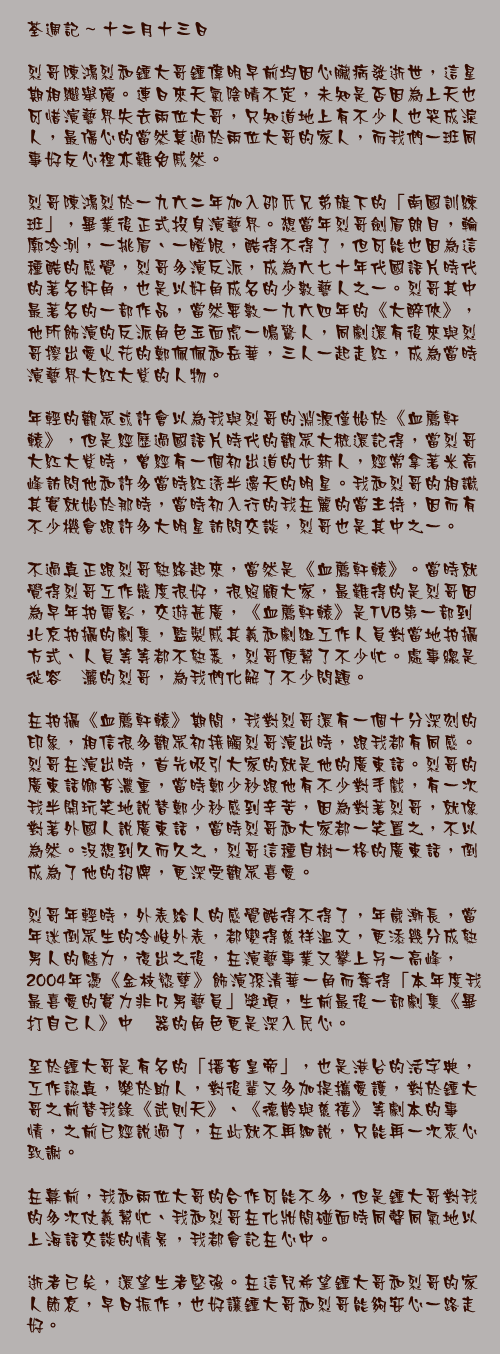 荃週記～十二月十三日
烈哥陳鴻烈和鍾大哥鍾偉明早前均因心臟病發逝世，這星
期相繼舉殯。連日來天氣陰晴不定，未知是否因為上天也
可惜演藝界失去兩位大哥，只知道地上有不少人也哭成淚
人，最傷心的當然莫過於兩位大哥的家人，而我們一班同
事好友心裡亦難免慼然。
烈哥陳鴻烈於一九六二年加入邵氏兄弟旗下的「南國訓練
班」，畢業後正式投身演藝界。想當年烈哥劍眉朗目，輪
廓冷洌，一挑眉、一瞪眼，酷得不得了，但可能也因為這
種酷的感覺，烈哥多演反派，成為六七十年代國語片時代
的著名奸角，也是以奸角成名的少數藝人之一。烈哥其中
最著名的一部作品，當然要數一九六四年的《大醉俠》，
他所飾演的反派角色玉面虎一鳴驚人，同劇還有後來與烈
哥擦出愛火花的鄭佩佩和岳華，三人一起走紅，成為當時
演藝界大紅大紫的人物。
年輕的觀眾或許會以為我與烈哥的淵源僅始於《血薦軒
轅》，但是經歷過國語片時代的觀眾大概還記得，當烈哥
大紅大紫時，曾經有一個初出道的女新人，經常拿著米高
峰訪問他和許多當時紅透半邊天的明星。我和烈哥的相識
其實就始於那時，當時初入行的我在麗的當主持，因而有
不少機會跟許多大明星訪問交談，烈哥也是其中之一。
不過真正跟烈哥熟絡起來，當然是《血薦軒轅》。當時就
覺得烈哥工作態度很好，很照顧大家，最難得的是烈哥因
為早年拍電影，交遊甚廣，《血薦軒轅》是TVB第一部到
北京拍攝的劇集，監製戚其義和劇組工作人員對當地拍攝
方式、人員等等都不熟悉，烈哥便幫了不少忙。處事總是
從容　灑的烈哥，為我們化解了不少問題。
在拍攝《血薦軒轅》期間，我對烈哥還有一個十分深刻的
印象，相信很多觀眾初接觸烈哥演出時，跟我都有同感。
烈哥在演出時，首先吸引大家的就是他的廣東話。烈哥的
廣東話鄉音濃重，當時鄭少秋跟他有不少對手戲，有一次
我半開玩笑地說替鄭少秋感到辛苦，因為對著烈哥，就像
對著外國人說廣東話，當時烈哥和大家都一笑置之，不以
為然。沒想到久而久之，烈哥這種自樹一格的廣東話，倒
成為了他的招牌，更深受觀眾喜愛。
烈哥年輕時，外表給人的感覺酷得不得了，年歲漸長，當
年迷倒眾生的冷峻外表，都變得慈祥溫文，更添幾分成熟
男人的魅力，復出之後，在演藝事業又攀上另一高峰，
2004年憑《金枝慾孽》飾演孫清華一角而奪得「本年度我
最喜愛的實力非凡男藝員」獎項，生前最後一部劇集《畢
打自己人》中　器的角色更是深入民心。
至於鍾大哥是有名的「播音皇帝」，也是港台的活字典，
工作認真，樂於助人，對後輩又多加提攜愛護，對於鍾大
哥之前替我錄《武則天》、《德齡與慈禧》等劇本的事
情，之前已經說過了，在此就不再細說，只能再一次衷心
致謝。
在幕前，我和兩位大哥的合作可能不多，但是鍾大哥對我
的多次仗義幫忙、我和烈哥在化妝間碰面時同聲同氣地以
上海話交談的情景，我都會記在心中。
逝者已矣，還望生者堅強。在這兒希望鍾大哥和烈哥的家
人節哀，早日振作，也好讓鍾大哥和烈哥能夠安心一路走
好。